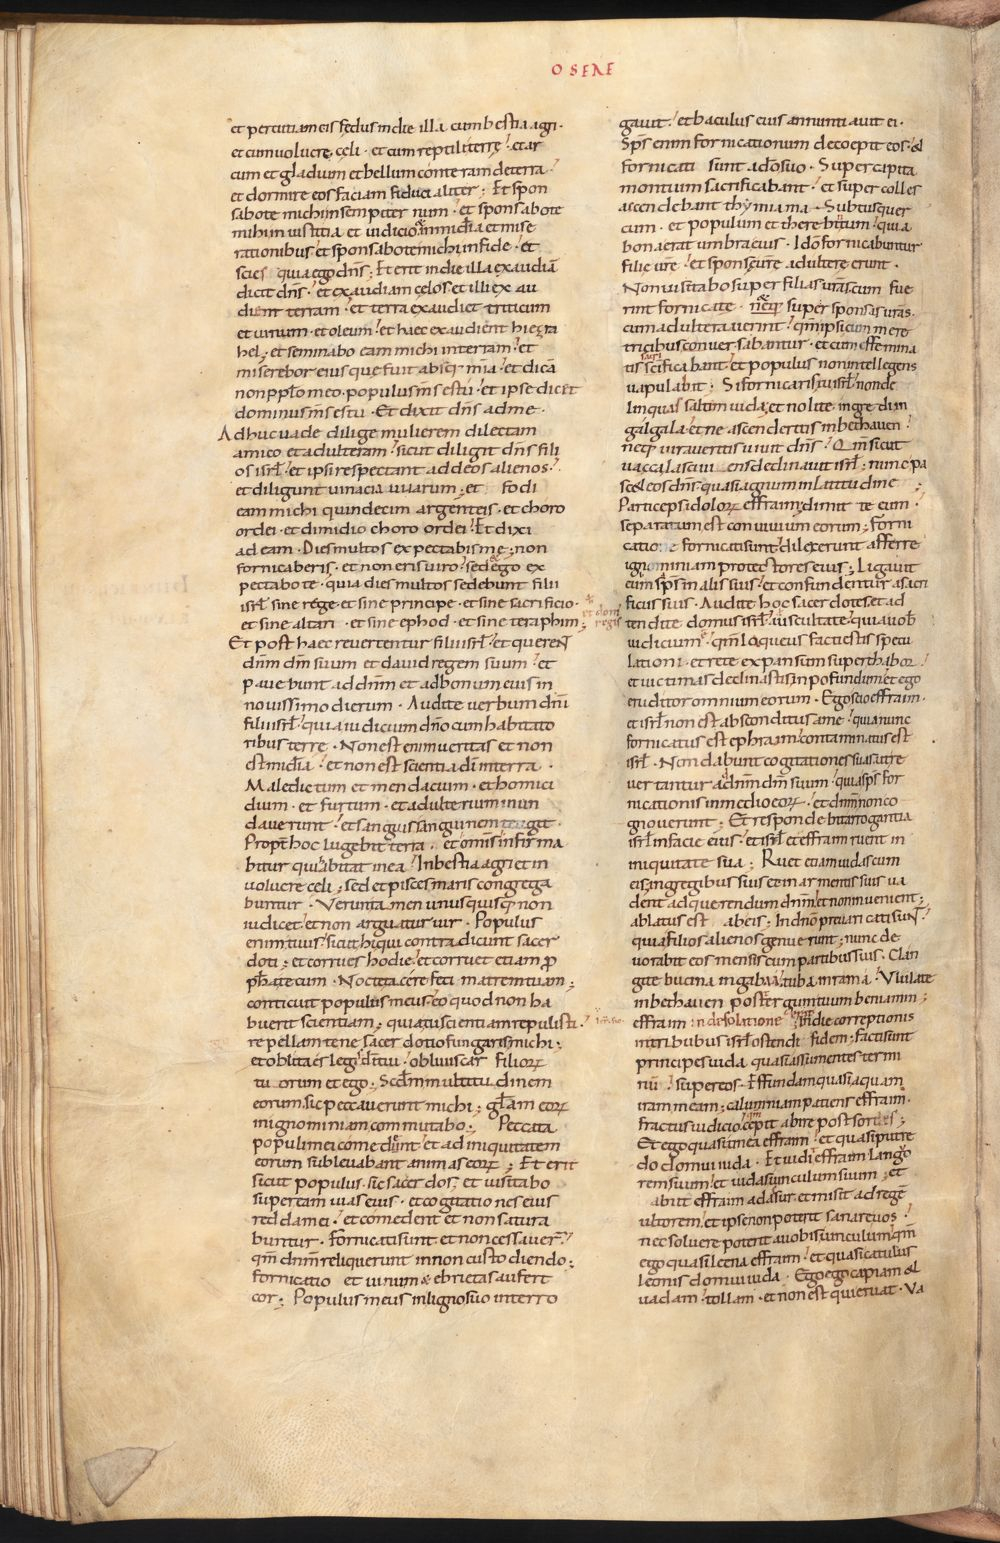 OSEAE
et percutiam eis fędus in die illa cum bestia agri·
et cum volucre cęli · et cum reptili terrę et ar
cum et gladium et bellum conteram de terra
et dormire eos faciam fiducialiter; Et spon
sabo te michi in sempiternum · et sponsabo te
mihi in iustitia et iudicio in mīdia et mise
rationibus et sponsabo te michi in fide · et
scies quia ego dn̄s; Et erit in die illa exaudiā
dicit dn̄s · et exaudiam cęlos et illi exau
dient terram · et terra exaudiet triticum
et uinum · et oleum et haec exaudient hiezra
hel; et seminabo eam michi in terram et
miserebor eius que fuit absq; mīa · et dicā
non pplo meo · populus m̄s es tu · et ipse dicet
dominus m̄s es tu · Et dixit dn̄s ad me ·
Adhuc uade dilige mulierem dilectam
amico et adulteram sicut diligit dn̄s fili
os isrł et ipsi respectant ad deos alienos
et diligunt uinacia uuarum; et fodi
eam michi quindecim argenteis · et choro
ordei · et dimidio choro ordei Et dixi
ad eam · Dies multos expectabis me; non
fornicaberis · et non eris uiro sed et ego ex
pectabo te · quia dies multos sedebunt filii
isrł sine rege · et sine principe · et sine sacrificio ·
et sine altari · et sine ephod · et sine teraphim;
Et post haec reuertentur filii isrł et querent
dn̄m dm̄ suum et dauid regem suum et
pauebunt ad dn̄m et ad bonum eius in
nouissimo dierum · Audite uerbum dn̄i
filii isrł quia iudicium dn̄o cum habitato
ribus terre · Non est enim ueritas et non
est mīdia et non est scientia dī in terra ·
Maledictum et mendacium · et homici
dium · et furtum · et adulterium inun
dauerunt et sanguis sanguinem tetigit ·
Propt hoc lugebit terra · et omīs infirma
bitur qui habitat in ea In bestia agri et in
uolucre celi; sed et pisces maris congrega
buntur · Verunta men unusquisq; non
iudicet et non arguatur uir · Populus
enim tuus sicut hi qui contradicunt sacer
doti; et corrues hodie et corruet etiam pro
ph̄ate cum · Nocte tacere feci matrem tuam;
conticuit populus meus eo quod non ha
buerit scientiam; quia tu scientiam repulisti
repellam te ne sacerdotio fungaris michi;
et oblita es legis dī tui · obliuiscar filiorum
tuorum et ego; Scdm multitudinem
eorum sic peccauerunt michi; glam eorum
in ignominiam commutabo; Peccata
populi mei comedent et ad iniquitatem
eorum subleuabant animas eorum; Et erit
sicut populus · sic sacerdos; et uisitabo
super eam uias eius · et cogitationes eius
reddam ei et comedent et non satura
buntur · Fornicati sunt et non cessauer
qm̄ dn̄m reliquerunt in non custodiendo;
Fornicatio et uinum & ebrietas aufert
cor; Populus meus in ligno suo interro
gauit et baculus eius annuntiauit ei ·
Sps enim fornicationum decoepit eos &
fornicati sunt a dō suo · Super capita
montium sacrificabant et super colles
accendebant thymiama · Subtus quer
cum · et populum et therebitum quia
bona erat umbra eius · Ido fornicabuntur
filie ur̄e et sponsę ur̄e adultere erunt ·
Non uisitabo super filias ur̄as cum fue
rint fornicate · neq; super sponsas ur̄as ·
cum adulterauerint qm̄ ipsi cum mere
tricibus conuersabantur · et cum effemina
tis sacrificabant et populus non intellegens
uapulabit; Si fornicaris tu isrł non de
linquat saltim iuda; et nolite ingredi in
galgala et ne ascenderitis in bethauen
neq; iuraueritis uiuit dn̄s Qm̄ sicut
uacca lasciuiens declinauit isrł; nunc pa
scet eos dn̄s · quasi agnum in latitudine ;
Particeps idolorum effraim; dimitte eum ·
separatum est conuiuium eorum; Forni
catione fornicati sunt dilexerunt afferre
ignominiam protectores eius; Ligauit
eum sps in alis suis et confundentur a sacri
ficiis suis · Audite hoc sacerdotes et ad
tendite domus isrł et domus regis auscultate quia uob
iudicium qm̄ laqueus facti estis specu
lationi · et rete expansum super thabor
et uictimas declinastis in pofundum et ego
eruditor omnium eorum · Ego scio effraim ·
et isrł non est absconditus a me quia nunc
fornicatus est ephraim contaminatus est
isrł · Non dabunt cogitationes suas ut re
uertantur ad dn̄m dm̄ suum quia sps for
nicationis in medio eorum et dn̄m non co
gnouerunt; Et respondebit arrogantia
isrł in facie eius et isrł et effraim ruent in
iniquitate sua; Ruet etiam iudas cum
eis; in gregibus suis et in armentis suis ua
dent ad querendum dn̄m et non inuenient;
ablatus est ab eis; In dn̄o preuaricati sunt
quia filios alienos genuerunt; nunc de
uorabit eos mensis cum partibus suis · Clan
gite bucina in gabaa tuba in rama · Vlulate
in bethauen post tergum tuum beniamin;
effraim in desolatione erit in die correptionis
in tribubus isrł ostendi fidem; Facti sunt
principes iuda quasi assumentes termi
nū super eos · Effundam quasi aquam
iram meam; calumniam patiens effraim ·
fractus iudicio qm̄ cepit abire post sordes;
Et ego quasi tinea effraim et quasi putre
do domui iuda · Et uidit effraim lango
rem suum et iudas uinculum suum; et
abiit effraim ad assur et misit ad regē
ultorem et ipse non poterit sanare uos
nec soluere poterit a uobis uinculum qm̄
ego quasi leena effraim et quasi catulus
leonis domui iuda · Ego ego capiam &
uadam tollam · et non est qui eruat · Va